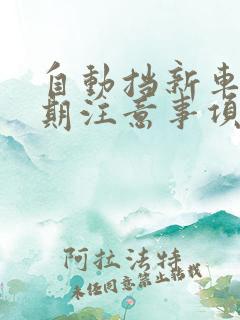 自動挡新車
期注意事項
阿拉法特
未经同意禁止转载